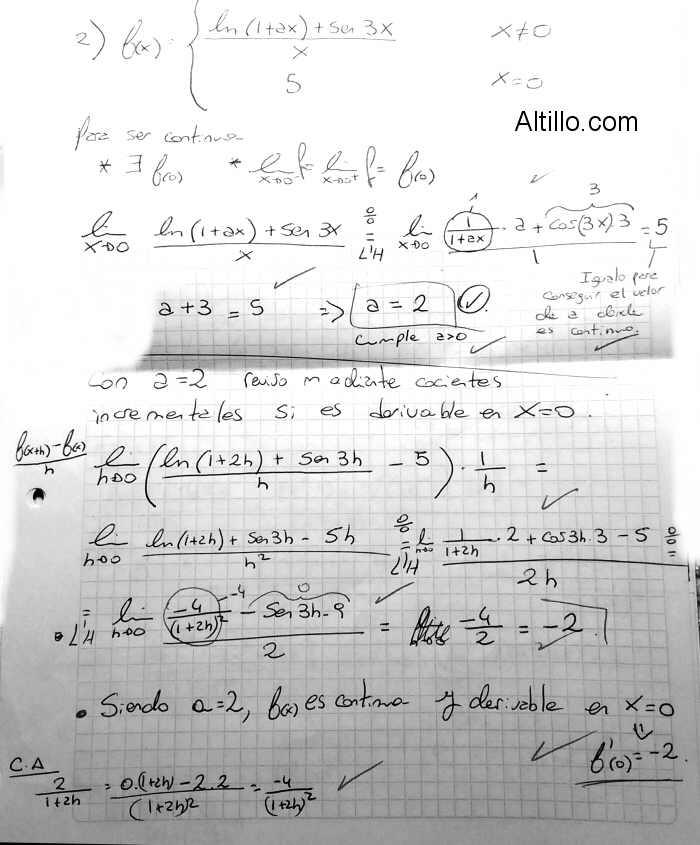 2) f(x) = { ln(1+ax) + sen 3x / x    x≠0
5    x=0
Altillo.com
Para ser continua
* ∃ f(0)    * lim x→0⁻ f = lim x→0⁺ f = f(0)
lim x→0 ln(1+ax) + sen 3x / x = 0/0 L'H lim x→0 1/(1+ax) · a + cos(3x)·3 / 1 = 5
1    3
a+3 = 5    => a = 2
cumple a>0
Igualo para
conseguir el valor
de a donde
es continua.
Con a=2 reviso mediante cocientes
incrementales si es derivable en x=0.
f(x+h)-f(x) / h    lim h→0 ( ln(1+2h) + sen 3h / h - 5 ) · 1/h =
lim h→0 ln(1+2h) + sen 3h - 5h / h² = 0/0 L'H lim h→0 1/(1+2h) · 2 + cos 3h·3 - 5 / 2h 0/0 =
= L'H lim h→0 -4/(1+2h)² - sen 3h·9 / 2 = -4/2 = -2
-4    0
• Siendo a=2, f(x) es continua y derivable en x=0
⇓
f'(0) = -2.
C.A
2/(1+2h) = 0·(1+2h) - 2·2 / (1+2h)² = -4/(1+2h)²